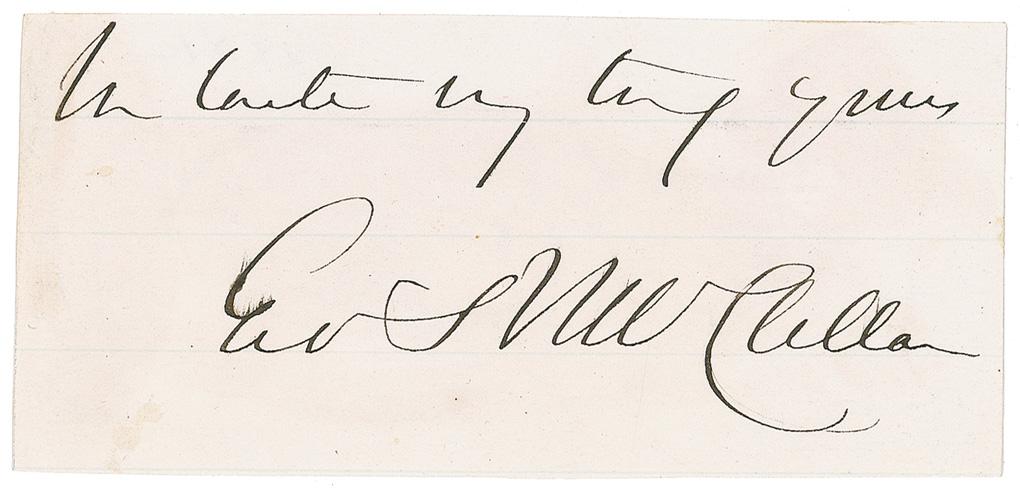 In haste very truly yours
Geo B McClellan